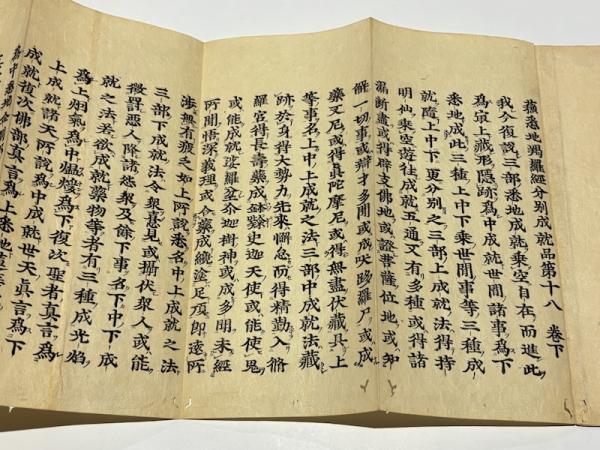 蘇悉地羯羅經分別成就品第十八　卷下
我今復說三部悉地成就乘空自在而進此
為冣上藏形隱跡為中成就世間諸事為下
悉地成此三種上中下乘世間事等三種成
就隨上中下更分別之三部上成就法得持
明仙乘空遊往成就五通又有多種或得諸
漏斷盡或得辟支佛地或證菩薩位地或知
解一切事或辯才多聞或成吠跢羅尸或成
藥叉尼或得真陀摩尼或得無盡伏藏具上
等事名上中上成就之法三部中成就法藏
跡於身得大勢力先來懈怠而得精勤入脩
羅宮得長壽藥成鉢㘑史迦天使或能使鬼
或能成就娑羅坌尒迦樹神或成多聞未經
所聞悟深義理或合藥成纔塗足頂即遠所
涉無有疲乏如上所說悉名中上成就之法
三部下成就法令衆喜見或攝伏衆人或能
徵罸惡人降諸怨衆及餘下事名下中下成
就之法若欲成就藥物等者有三種成光焰
為上烟氣為中煴煖為下復次聖者真言為
上成就諸天所說為中成就世天真言為下
成就復次佛部真言為上悉地蓮
為中悉地金剛